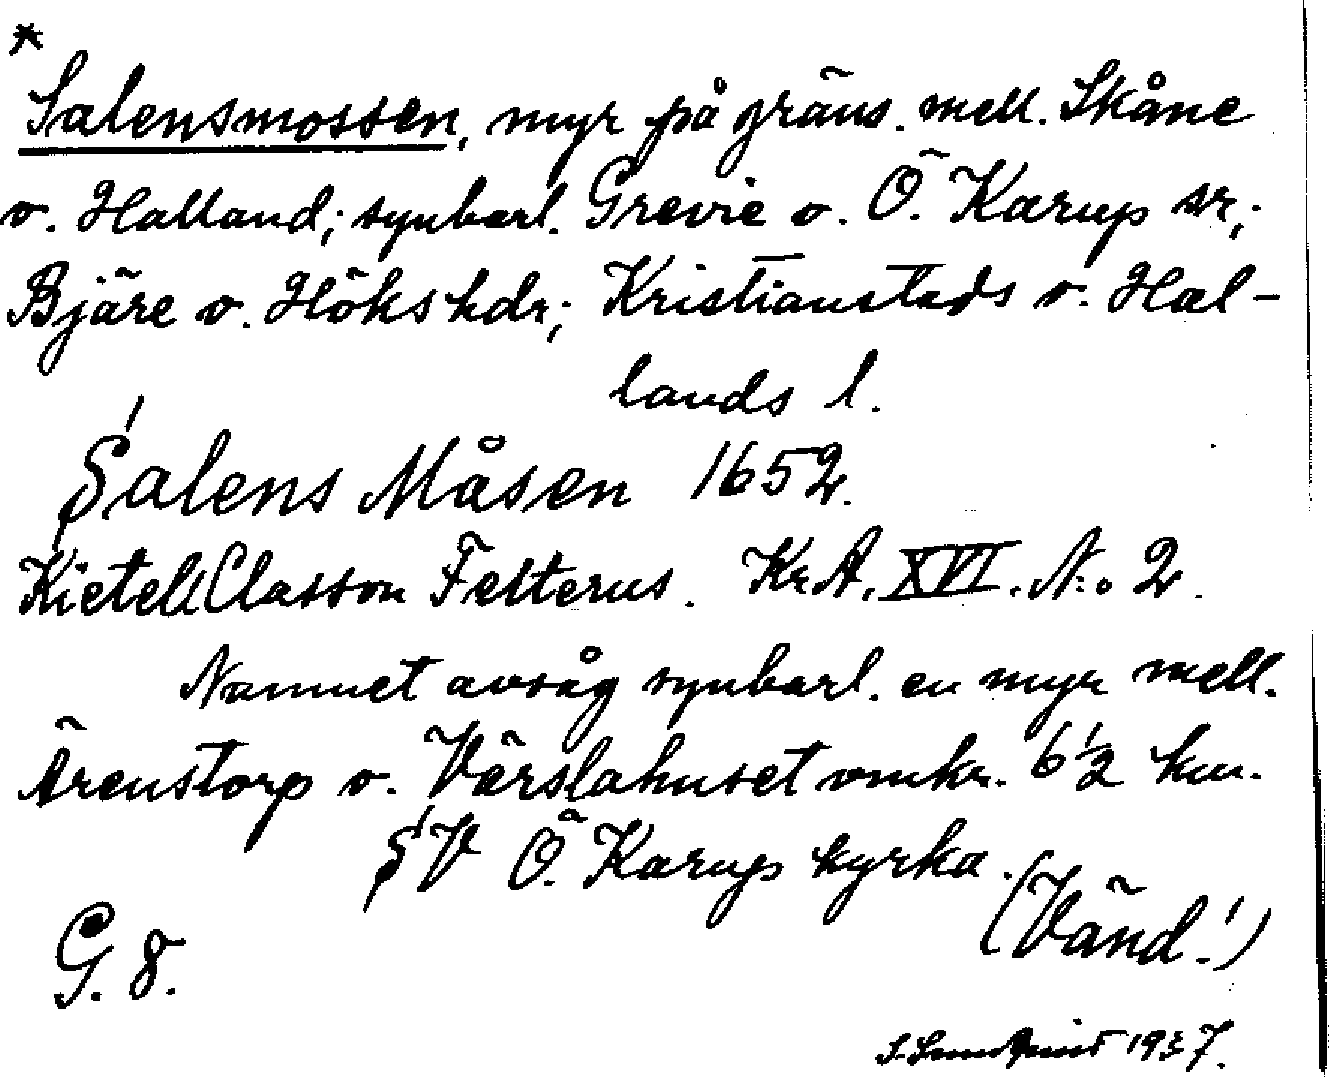 *
Salensmossen, myr på gräns. mell. Skåne
o. Halland; synbarl. Grevie o. Ö. Karup sr,;
Bjäre o. Höks hdr,; Kristianstads o. Hal-
lands l.
Salens Måsen 1652.
Kietell Classon Felterus. Kr.A. XVI. N:o 2.
Namnet avsåg synbarl. en myr mell.
Ärenstorp o. Värslahuset omkr. 6 1/2 km.
SV Ö. Karups kyrka.
(Vänd!)
G. 8.
S. Sundquist 1937.